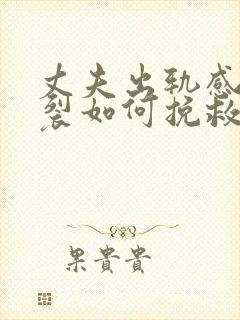 丈夫出轨感
裂如何挽救
果貴貴